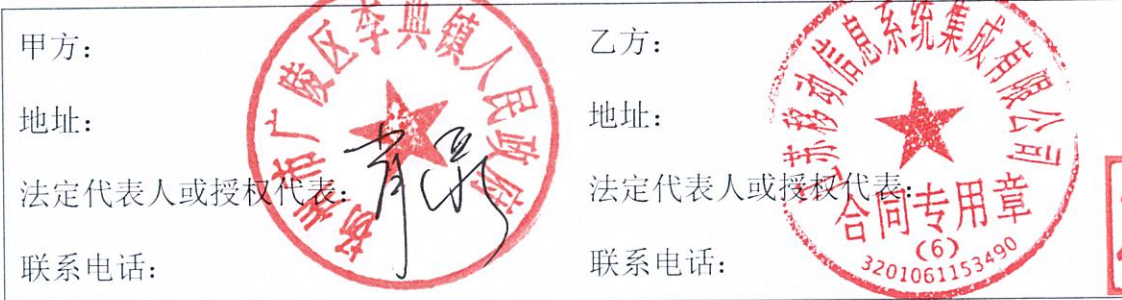 甲方：
地址：
法定代表人或授权代表：
联系电话：
扬州市广陵区李典镇人民政府
乙方：
地址：
法定代表人或授权代表：
联系电话：
江苏移动信息系统集成有限公司
合同专用章
(6)
3201061153490